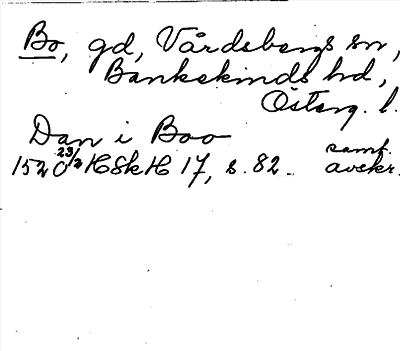 Bo, gd, Vårdsbergs sn,
Bankekinds hd,
Österg. l.
Dan i Boo
1520 23/2 HSkH 17, s. 82. samt. avskr.